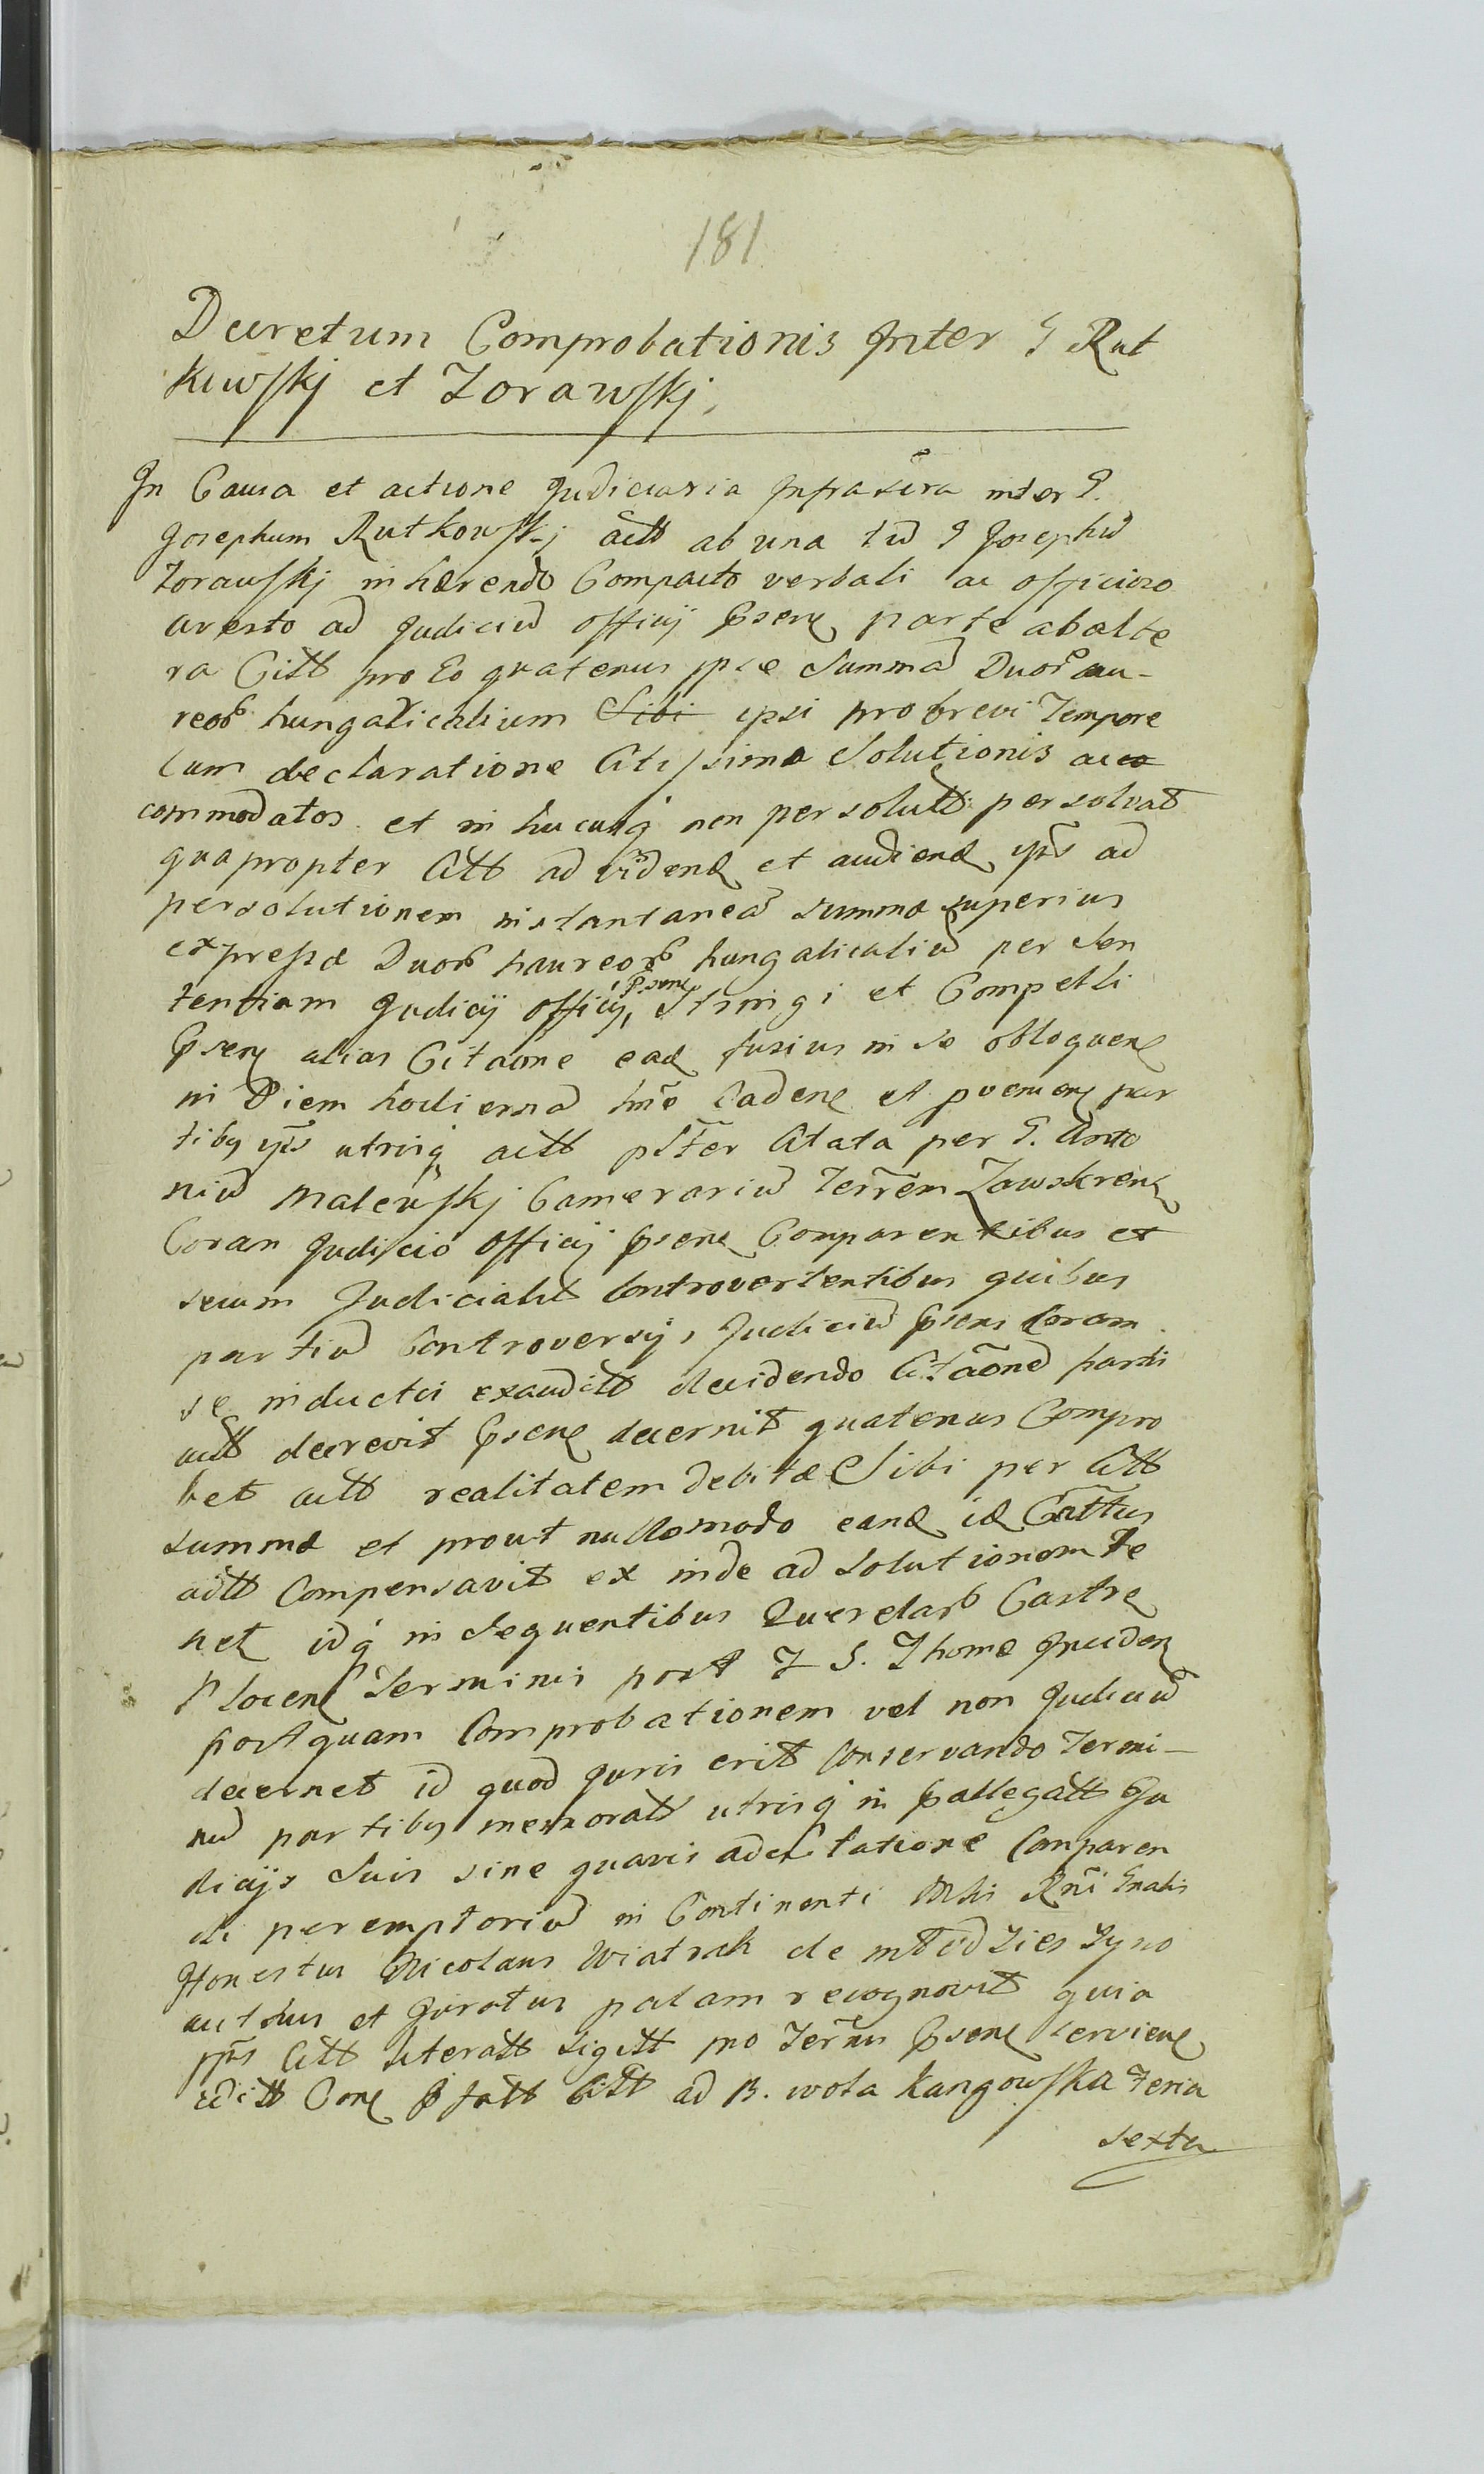 181
Decretum Comprobationis Inter G Rut
kowskj et Zorawskj
In Causa et actione Judiciaria Infrascra inter G.
Josephum Rutkowskj actt ab una tum G Josephum
Zorawskj inhærendo Compacto verbali ac officioso
aresto ad Judicium officij psens parte ab alte
ra Citt pro Eo quatenus ipse Summam Duor au-
reor hungaricalium Sibi ipsi pro brevi Tempore
cum declaratione Citissimæ Solutionis acco
commodatos et in hucusq non persolutt persolvat
quapropter Citt ad Viden et audien ips ad
persolutionem instantaneam summæ superius
expressæ Duor haureor hungalicalium per Sen
tentiam Judicij officij psens Stringi et Compelli
psens alias Citaone ead fusius in se obloquen
in Diem hodiernam hne Caden et pvenien par
tibq ips utrisq actt psster Citata per G. Anto
nium Malewskj Camerarium Terrem Zawskren
Coram Judicio Officij psens Comparentibus et
secum Judicialit Controvertentibus quibus
partium Controversijs Judicium psens Coram
se inductis exauditt decidendo Citaonem parti
actt decrevit psens decernit quatenus Compro
bet actt realitatem debitæ Sibi per Citt
summæ et prout nullomodo eand id Cittus
actt Compensavit ex inde ad Solutionem te
net idq in Sequentibus Querelar Castre
Plocen Terminis post F S. Thomæ Inciden
postquam Comprobationem vel non Judicium
decernet id quod Juris erit Conservando Termi-
num partibq memoratt utrisq in pallegatt Ju
dicijs Suis sine quavis adcitatione Comparen
di peremptorium in Continenti Mlis Rni Gnalis
Honestus Nicolaus Wiatrak de
authus et Juratus palam recognovit quia
ips Citt literatt sigitt pro Termis psens servien
editt Con Citt ad B. wola Kangowska Feria
sexta